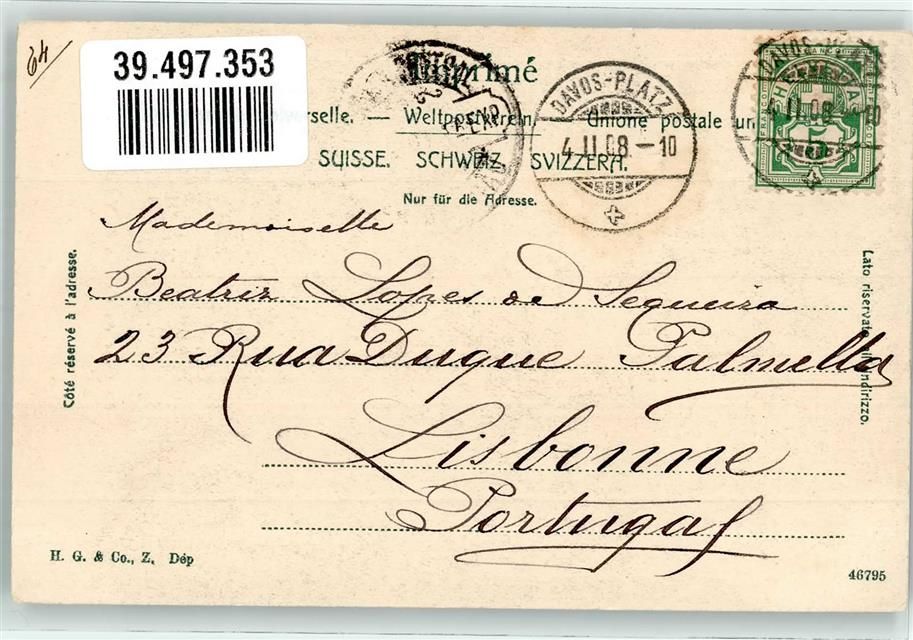 24
39.497.353
Imprimé
DAVOS-PLATZ
4.II.08.-10
DAVOS
II.08.-10
HELVETIA
FRANCO
5
rselle. — Weltpostverein. — Unione postale un
SUISSE. SCHWEIZ. SVIZZERA.
Nur für die Adresse.
Côté réservé à l'adresse.
Lato riservato all'indirizzo.
Mademoiselle
Beatriz Lopes de Sequeira
23 Rua Duque Palmella
Lisbonne
Portugal
H. G. & Co., Z. Dép
46795